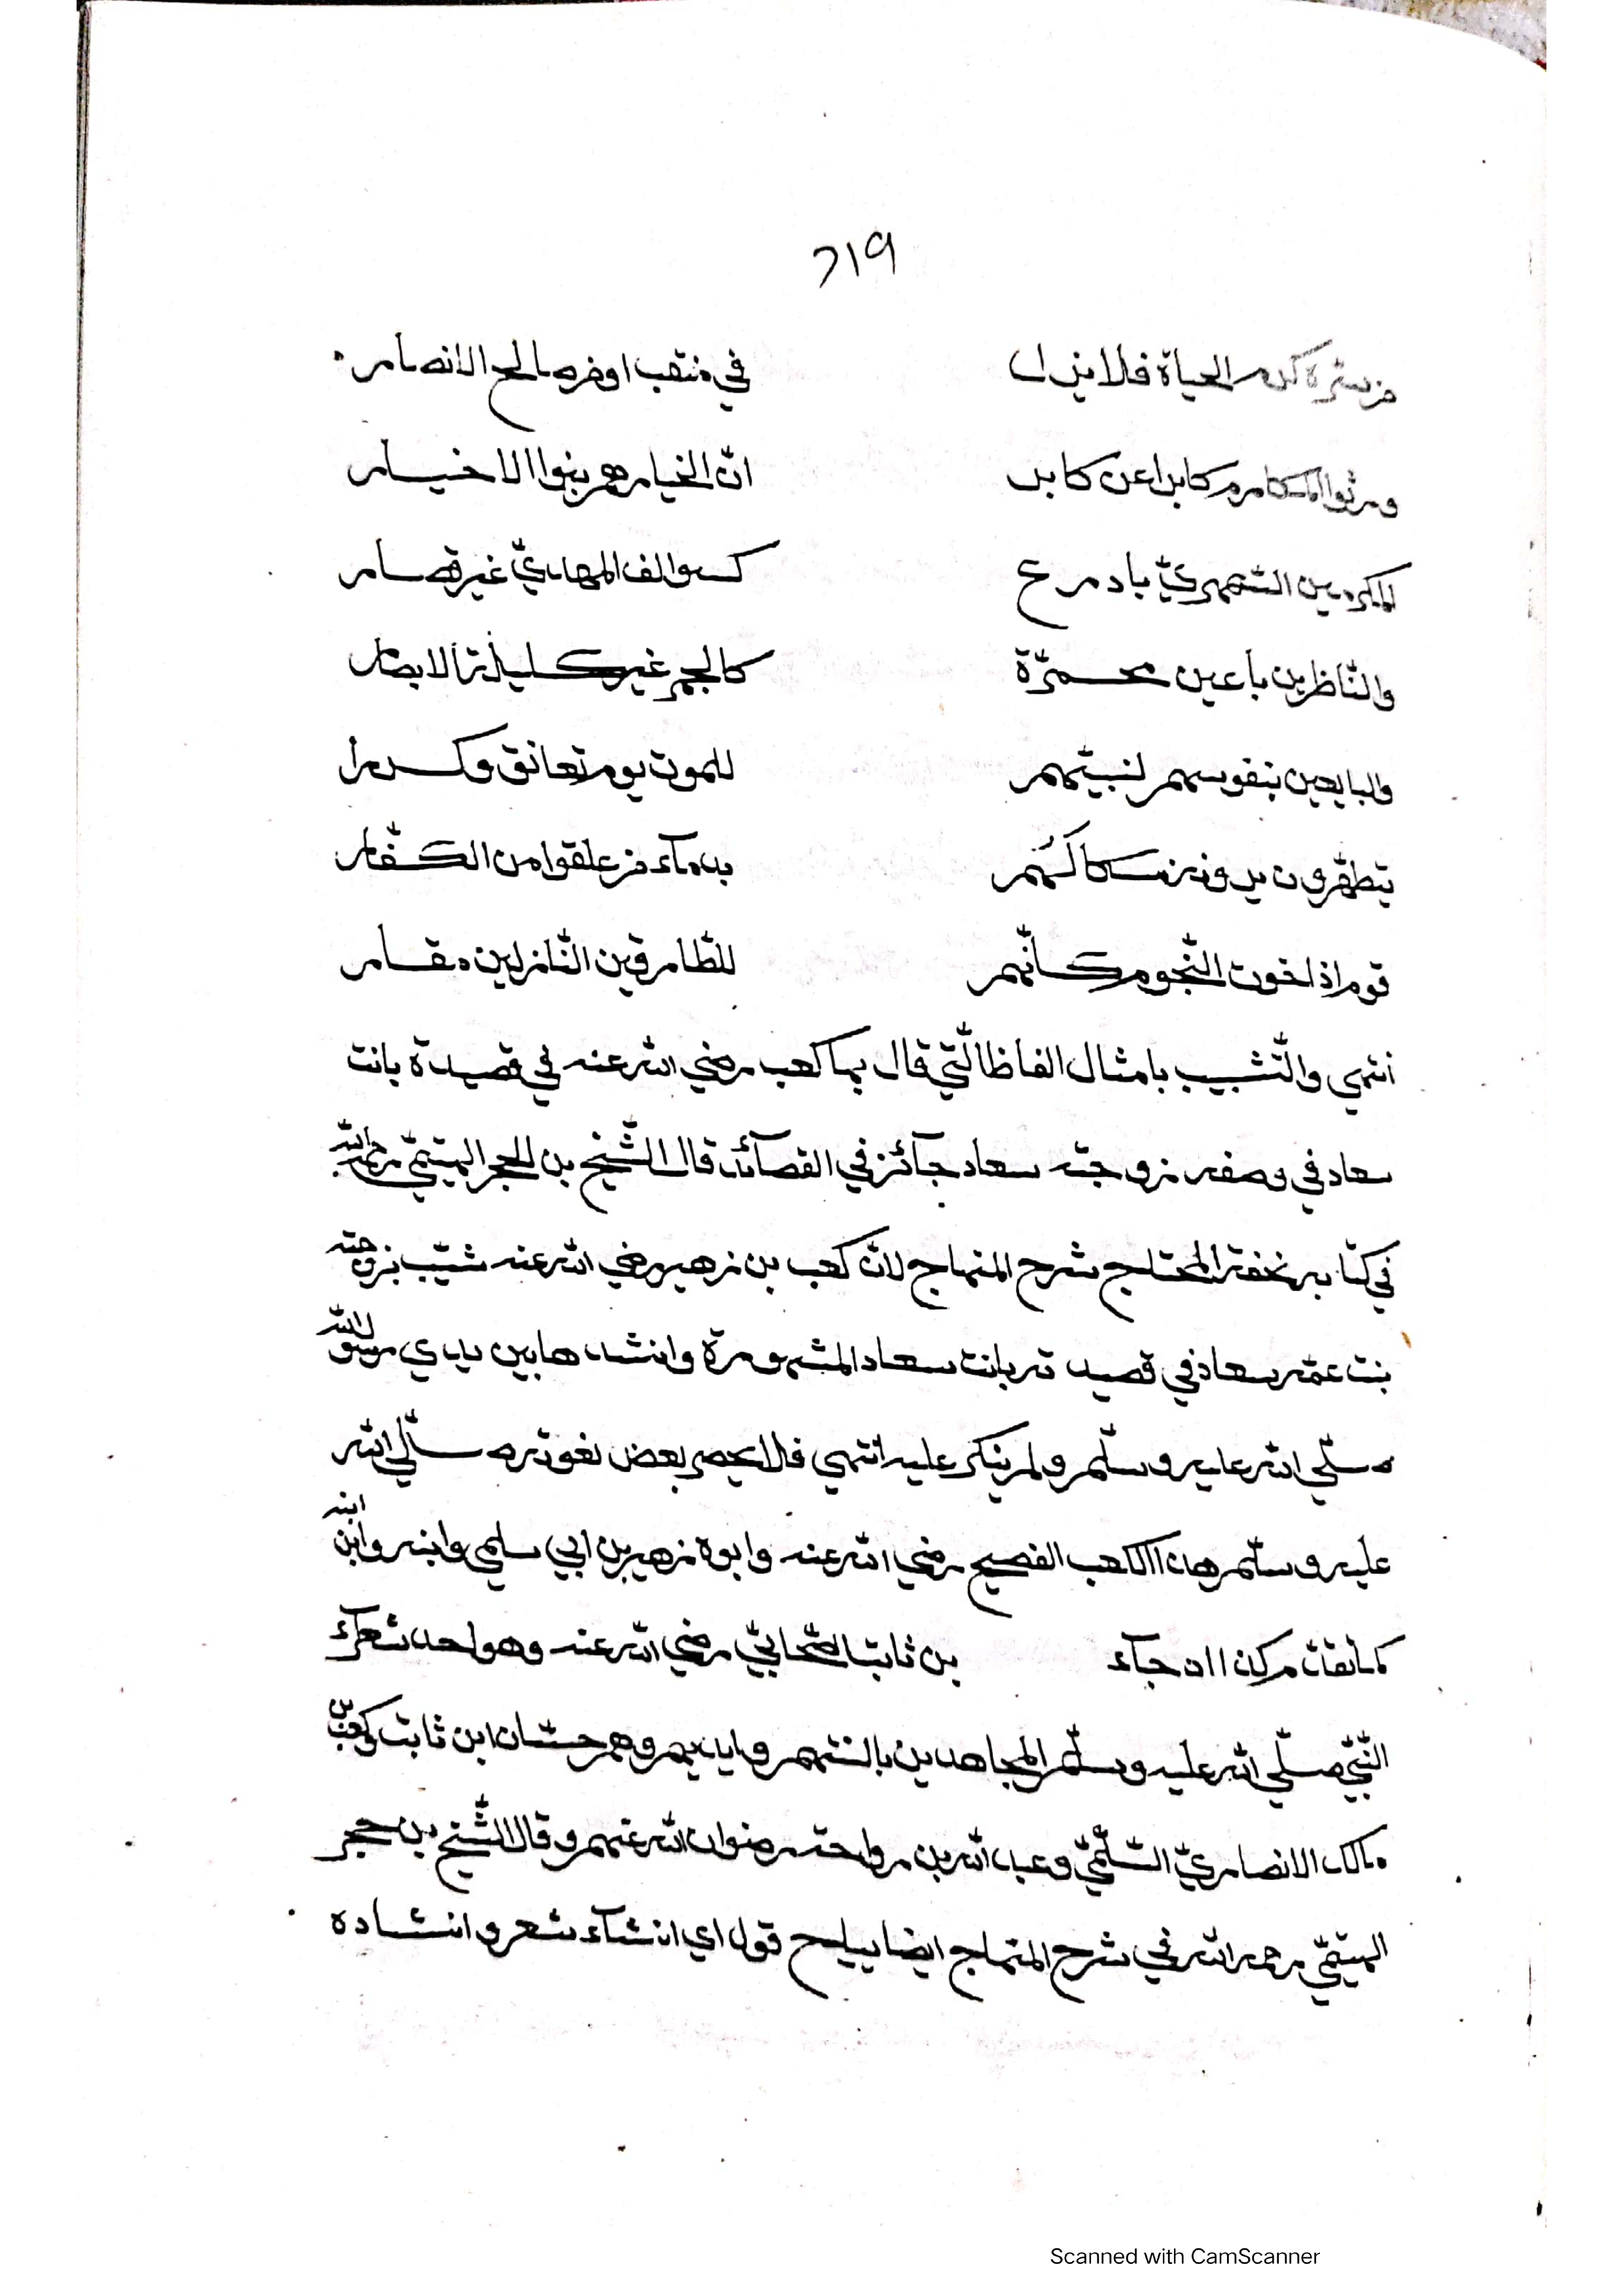 ٢١٩
من سره كرم الحياة فلا يزل في منقب او من صالح الانصار
ورثوا المكارم كابرا عن كابر انّ الخيار هم بنوا الاخيار
المكرهين السّمهريّ بادرع كسوالف الهاديّ غير قصار
والنّاظرين باعين محمرّة كالجمر غير كليلة الابصار
والبايعين نفوسهم لنبيّهم للموت يوم تعانق وكرار
يتطهّرون يرونه نسكا لهم بدمآء من علقوا من الكفّار
قوم اذا خوت النّجوم كانّهم للطّارقين النّازلين مقار
انتهى والتّشبيب بامثال الفاظ الّتي قال بها كعب رضي الله عنه في قصيدة بانت
سعاد في وصفه زوجته سعاد جآئز في القصآئد قال الشّيخ بن الحجر الهيتميّ رحمه الله
في كتابه تحفة المحتاج شرح المنهاج لانّ كعب بن زهير رضي الله عنه شبّب بزوجته
بنت عمّه سعاد في قصيدته بانت سعاد المشهورة وانشدها بين يدي رسول الله
صلّى الله عليه وسلّم ولم ينكر عليه انتهى فلا يحصر بعض نعوته صلّى الله
عليه وسلّم هذا الكعب الفصيح رضي الله عنه وابوه زهير بن ابي سلمى وابنه وابن ابنه
كما جآء بن ثابت الصّحابيّ رضي الله عنه وهو احد شعرآء
النّبيّ صلّى الله عليه وسلّم المجاهدين بالسنتهم وايديهم وهم حسّان ابن ثابت وكعب بن
مالك الانصاريّ السّلميّ وعبد الله بن رواحة رضوان الله عنهم وقال الشّيخ بن حجر
الهيتميّ رحمه الله في شرح المنهاج ايضا يباح قول اي انشآء شعر وانشاده
Scanned with CamScanner